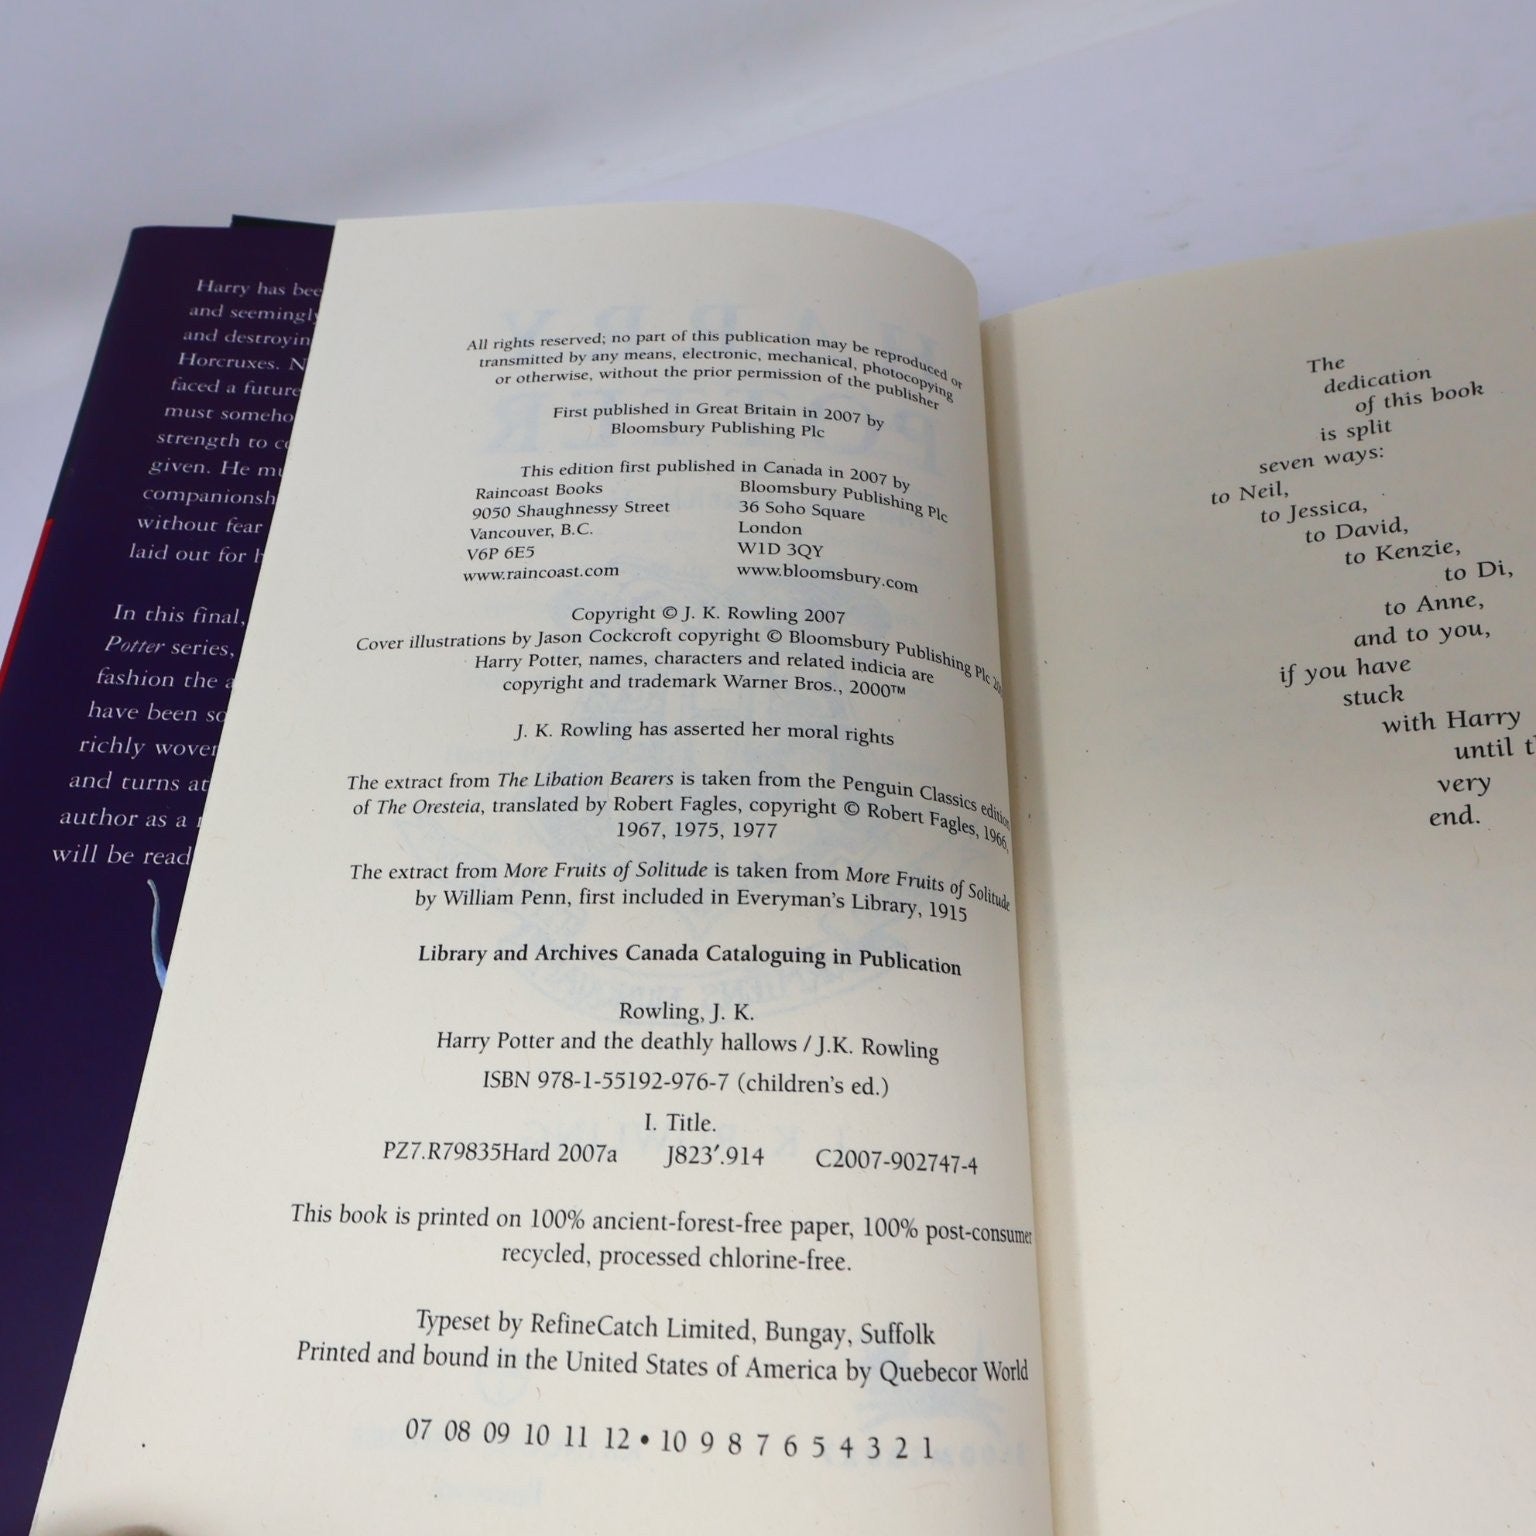 Harry has bee
and seemingly
and destroyin
Horcruxes. N
faced a future
must someho
strength to c
given. He mu
companionsh
without fear
laid out for h
In this final,
Potter series,
fashion the a
have been so
richly wover
and turns at
author as a
will be read
All rights reserved; no part of this publication may be reproduced or
transmitted by any means, electronic, mechanical, photocopying
or otherwise, without the prior permission of the publisher
First published in Great Britain in 2007 by
Bloomsbury Publishing Plc
This edition first published in Canada in 2007 by
Raincoast Books Bloomsbury Publishing Plc
9050 Shaughnessy Street 36 Soho Square
Vancouver, B.C. London
V6P 6E5 W1D 3QY
www.raincoast.com www.bloomsbury.com
Copyright © J. K. Rowling 2007
Cover illustrations by Jason Cockcroft copyright © Bloomsbury Publishing Plc
Harry Potter, names, characters and related indicia are
copyright and trademark Warner Bros., 2000™
J. K. Rowling has asserted her moral rights
The extract from The Libation Bearers is taken from the Penguin Classics edition
of The Oresteia, translated by Robert Fagles, copyright © Robert Fagles, 1966,
1967, 1975, 1977
The extract from More Fruits of Solitude is taken from More Fruits of Solitude
by William Penn, first included in Everyman's Library, 1915
Library and Archives Canada Cataloguing in Publication
Rowling, J. K.
Harry Potter and the deathly hallows / J.K. Rowling
ISBN 978-1-55192-976-7 (children's ed.)
I. Title.
PZ7.R79835Hard 2007a J823′.914 C2007-902747-4
This book is printed on 100% ancient-forest-free paper, 100% post-consumer
recycled, processed chlorine-free.
Typeset by RefineCatch Limited, Bungay, Suffolk
Printed and bound in the United States of America by Quebecor World
07 08 09 10 11 12 • 10 9 8 7 6 5 4 3 2 1
The
dedication
of this book
is split
seven ways:
to Neil,
to Jessica,
to David,
to Kenzie,
to Di,
to Anne,
and to you,
if you have
stuck
with Harry
until t
very
end.